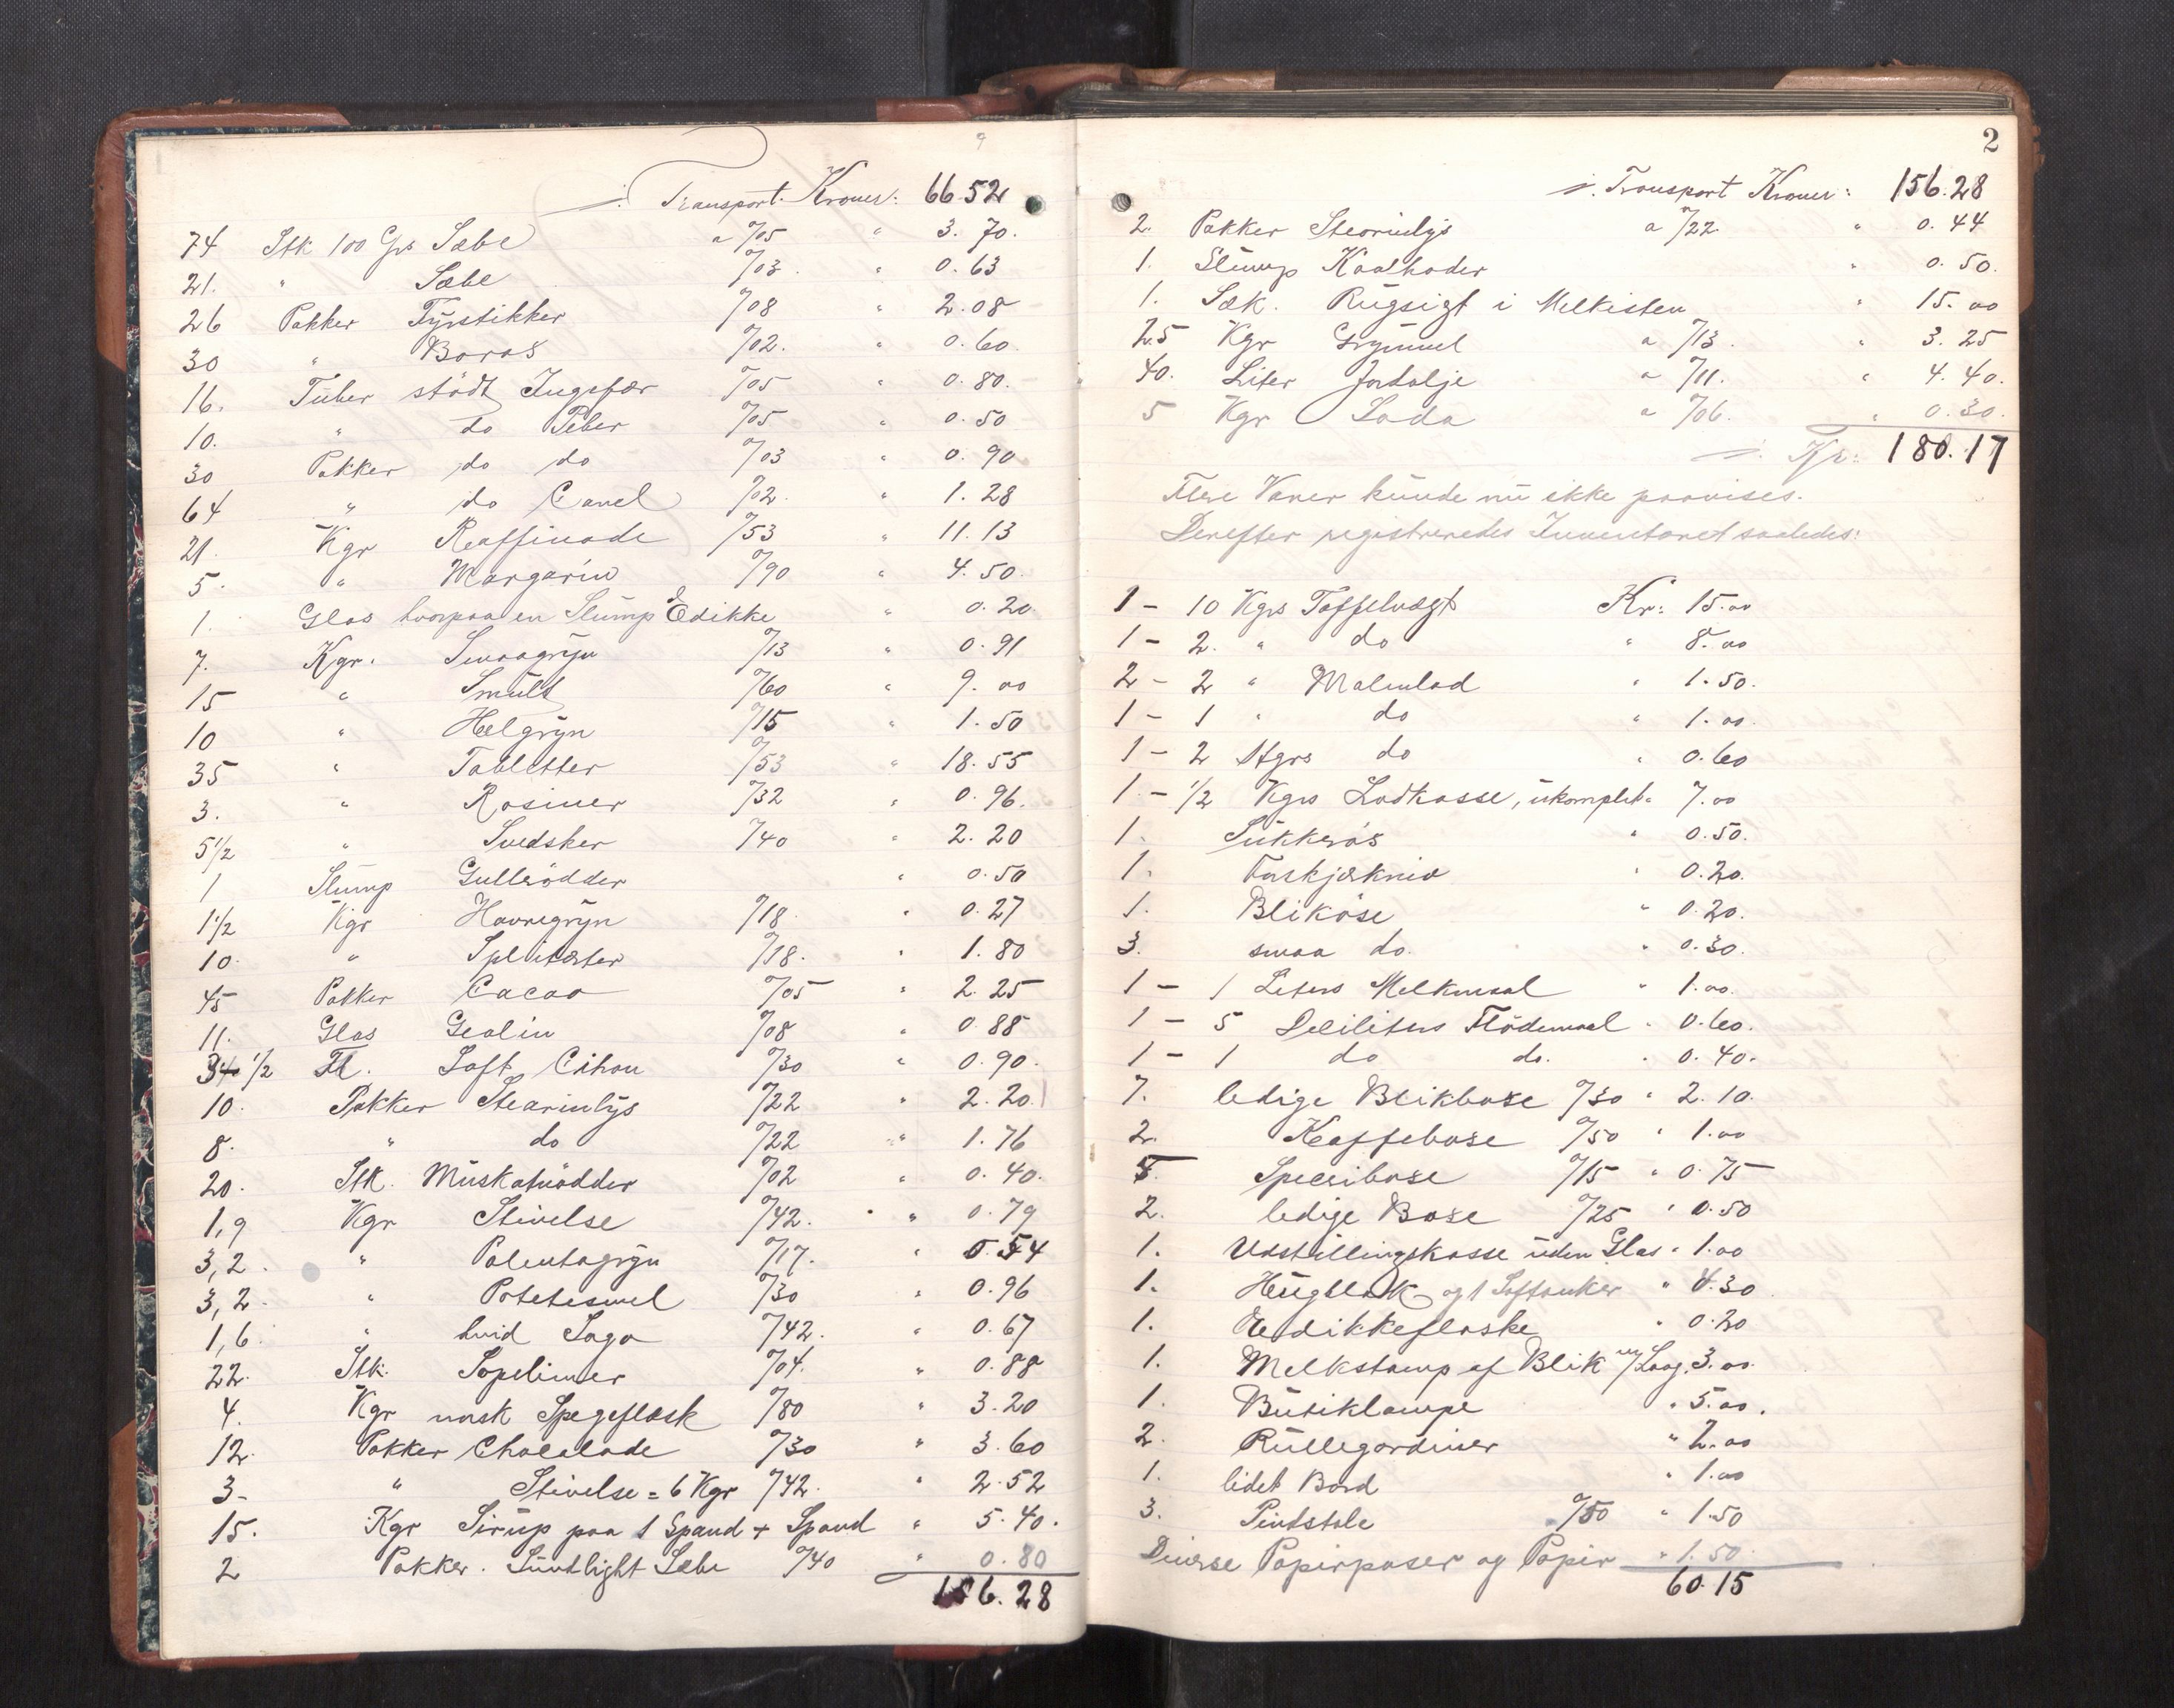 ./. Transport Kroner: 66 52
74 Stk 100 Grs Sæbe a %05 " 3.70.
21. " Sæbe %03. " 0.63
26 Pakker Fyrstikker %08 " 2.08
30 " Borax %02. " 0.60
16. Tuber stödt Ingefær %05 " 0.80.
10. " do Peber %05 " 0.50
30 Pakker do do %03 " 0.90
64 " do Canel %02. " 1.28
21. Kgr Raffinade %53 " 11.13
5. " Margarin %90 " 4.50.
1. Glas hvorpaa en Slump Edikke " 0.20
7. Kgr. Smaagryn %13 " 0.91
15 " Smult %60 " 9.00
10 " Helgryn %15 " 1.50
35 " Tabletter %53 " 18.55
3. " Rosiner %32 " 0.96.
5½ " Svedsker %40 " 2.20
1 Slump Gulleródder " 0.50
1½ Kgr Havregryn %18 " 0.27
10. " Splitærter %18. " 1.80
45 Pakker Cacao %05 " 2.25
11. Glas %08 " 0.88
3 ½ Fl. Saft Cihou %30 " 0.90.
10. Pakker Stearinlys %22 " 2.20.
8. " do %22 " 1.76
20. Stk. Muskatnödder %02 " 0.40.
1,9 Kgr Stivelse %42. " 0.79
3,2. " Polentagryn %17. " 0.54
3,2. " Potetesmel %30 " 0.96
1,6. " hvid Sago %42. " 0.67
22. Stk. Sopelimer %04. " 0.88
4. Kgr norsk Spegeflæsk %80 " 3.20
12. Pakker Chocolade %30 " 3.60
3- " Stivelse = 6 Kgr %42. " 2.52
15. Kgr Sirup paa 1 Spand + Spand " 5.40.
2 Pakker. Sunlight Sæbe %40 " 0.80
156.28
2
./. Transport Kroner: 156.28
2. Pakker Stearinlys a %22. " 0.44
1. Slump Kaalhoder " 0.50.
1. Sæk. Rugsigt i Melkisten " 15.00
25 Kgr Grynmel a %13. " 3.25
40. Liter Jordolje a %11. " 4.40.
5 Kgr Soda a %06. " 0.30.
./. Kr: 180.17
Flere Varer kunde nu ikke paavises.
Derefter registreredes Inventaret saaledes:
1 - 10 Kgrs Taffelvægt Kr: 15.00
1 - 2. " do " 8.00
2 - 2 " Malmlod " 1.50.
1 - 1 " do " 1.00.
1 - 2 Hgrs do " 0.60
1 - ½ Kgrs Lodkasse, ukomplet " 7.00
1. Sukkersax " 0.50.
1. Forskjærkniv " 0.20.
1. Bliköse " 0.20.
3. smaa do. " 0.30.
1 - 1 Liters Melkmaal " 1.00.
1 - 5 Deciliters Flödemaal " 0.60.
1 - 1 do do. " 0.40.
7. ledige Blikboxe %30 " 2.10.
2. Kaffeboxe %50 " 1.00
5. Speceriboxe %15 " 0.75
2. ledige Boxe %25 " 0.50
1. Udstillingskasse uden Glas " 1.00
1. Hugblok og 1 Saftanker " 0.30
1. Eddikkeflaske " 0.20
1. Melkstamp af Blik m/Laag. 3.00.
1. Butiklampe " 5.00.
2. Rullegardiner " 2.00
1. lidet Bord " 1.00
3. Pindstole %50 " 1.50
Diverse Papirposer og Papir " 1.50.
60.15